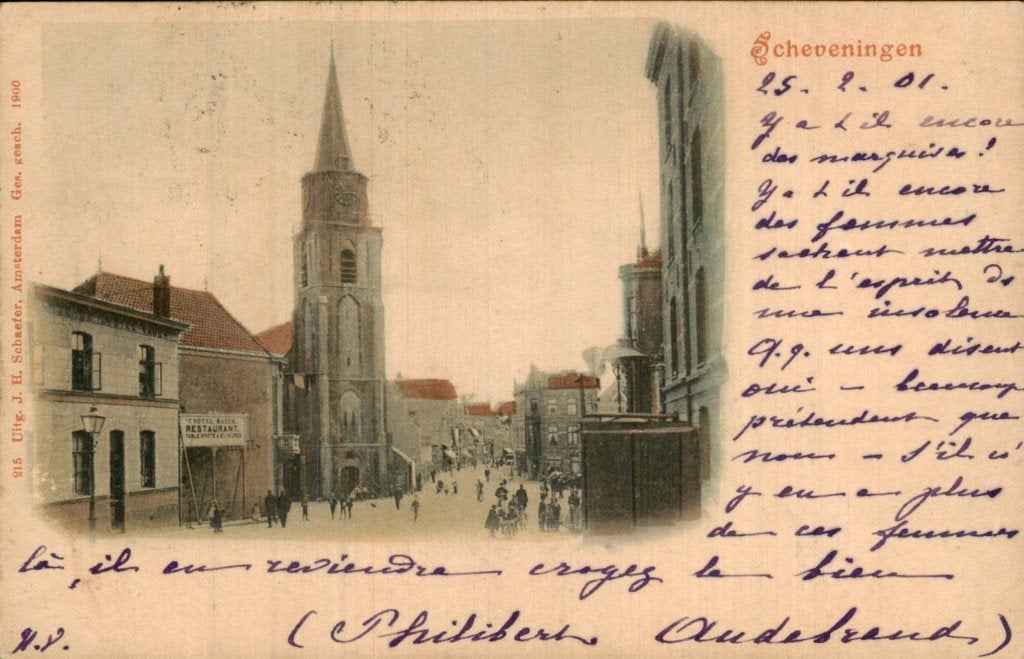 Scheveningen
25. 2. 01.
Y a t il encore
des marquises!
Y a t il encore
des femmes
sachant mettre
de l'esprit ds
une insolence
Q.q. uns disent
oui – beaucoup
prétendent que
nous – s'il n'
y en a plus
de ces femmes
là, il en reviendra croyez le bien
(Philibert Audebrand)
215 Uitg. J. H. Schaefer, Amsterdam Ges. gesch. 1900
HOTEL
RESTAURANT.